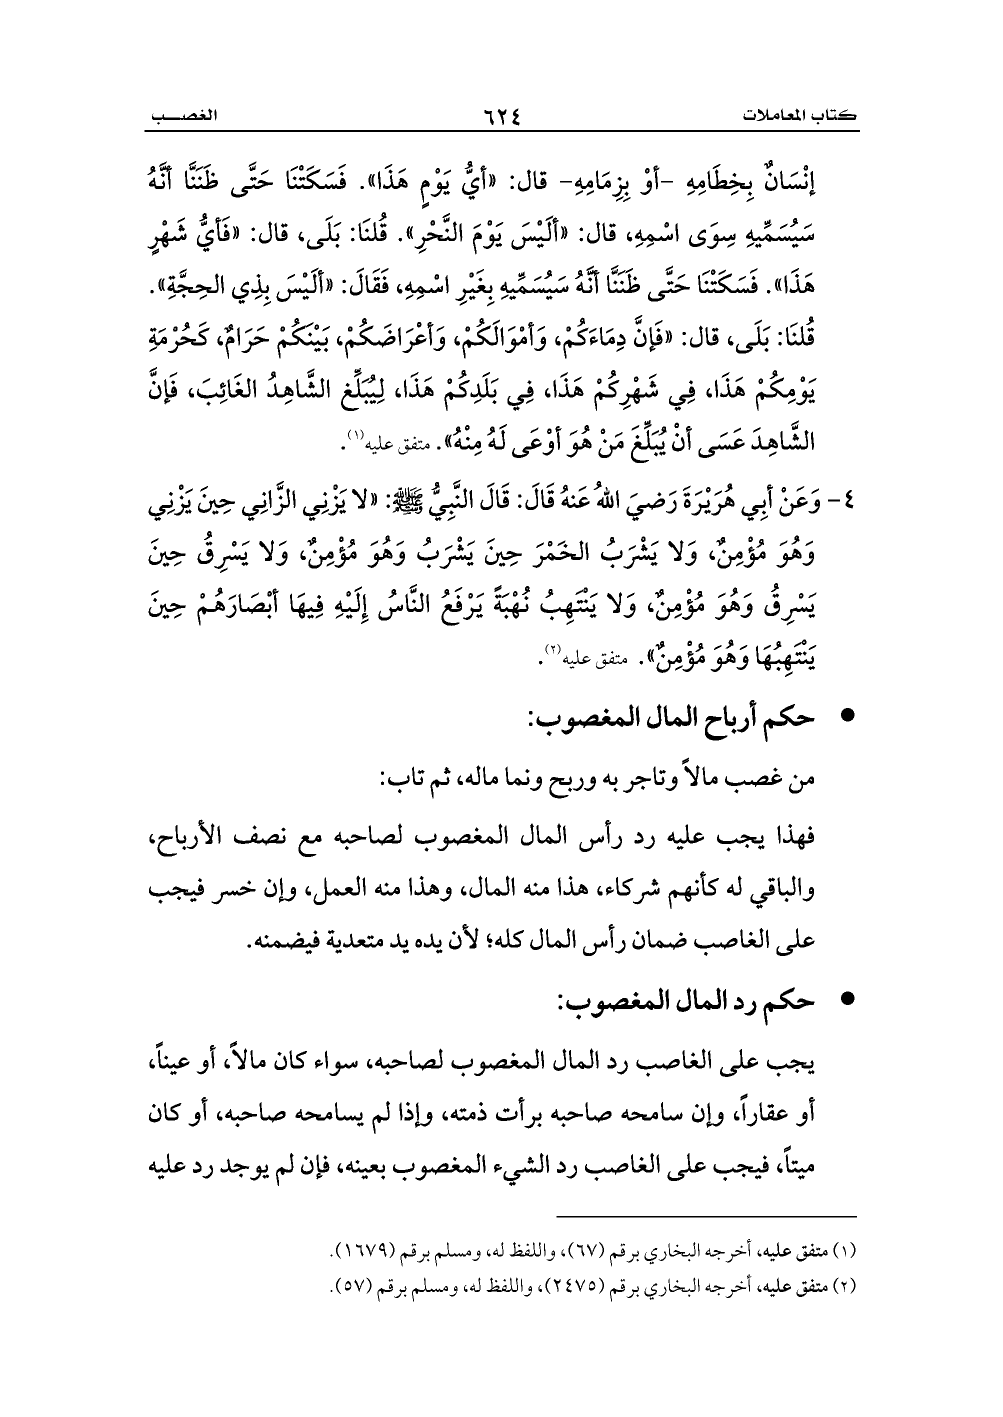 كتاب المعاملات ٦٢٤ الغصــب
إنْسَانٌ بِخِطَامِهِ -أوْ بِزِمَامِهِ- قال: «أيُّ يَوْمٍ هَذَا». فَسَكَتْنَا حَتَّى ظَنَنَّا أنَّهُ
سَيُسَمِّيهِ سِوَى اسْمِهِ، قال: «ألَيْسَ يَوْمَ النَّحْرِ». قُلنَا: بَلَى، قال: «فَأيُّ شَهْرٍ
هَذَا». فَسَكَتْنَا حَتَّى ظَنَنَّا أنَّهُ سَيُسَمِّيهِ بِغَيْرِ اسْمِهِ، فَقَالَ: «ألَيْسَ بِذِي الحِجَّةِ».
قُلنَا: بَلَى، قال: «فَإنَّ دِمَاءَكُمْ، وَأمْوَالَكُمْ، وَأعْرَاضَكُمْ، بَيْنَكُمْ حَرَامٌ، كَحُرْمَةِ
يَوْمِكُمْ هَذَا، فِي شَهْرِكُمْ هَذَا، فِي بَلَدِكُمْ هَذَا، لِيُبَلِّغ الشَّاهِدُ الغَائِبَ، فَإنَّ
الشَّاهِدَ عَسَى أنْ يُبَلِّغَ مَنْ هُوَ أوْعَى لَهُ مِنْهُ». متفق عليه(١).
٤- وَعَنْ أبِي هُرَيْرَةَ رَضيَ اللهُ عَنهُ قَالَ: قَالَ النَّبِيُّ ﷺ: «لا يَزْنِي الزَّانِي حِينَ يَزْنِي
وَهُوَ مُؤْمِنٌ، وَلا يَشْرَبُ الخَمْرَ حِينَ يَشْرَبُ وَهُوَ مُؤْمِنٌ، وَلا يَسْرِقُ حِينَ
يَسْرِقُ وَهُوَ مُؤْمِنٌ، وَلا يَنْتَهِبُ نُهْبَةً يَرْفَعُ النَّاسُ إلَيْهِ فِيهَا أبْصَارَهُمْ حِينَ
يَنْتَهِبُهَا وَهُوَ مُؤْمِنٌ». متفق عليه(٢).
● حكم أرباح المال المغصوب:
من غصب مالاً وتاجر به وربح ونما ماله، ثم تاب:
فهذا يجب عليه رد رأس المال المغصوب لصاحبه مع نصف الأرباح،
والباقي له كأنهم شركاء، هذا منه المال، وهذا منه العمل، وإن خسر فيجب
على الغاصب ضمان رأس المال كله؛ لأن يده يد متعدية فيضمنه.
● حكم رد المال المغصوب:
يجب على الغاصب رد المال المغصوب لصاحبه، سواء كان مالاً، أو عيناً،
أو عقاراً، وإن سامحه صاحبه برأت ذمته، وإذا لم يسامحه صاحبه، أو كان
ميتاً، فيجب على الغاصب رد الشيء المغصوب بعينه، فإن لم يوجد رد عليه
(١) متفق عليه، أخرجه البخاري برقم (٦٧)، واللفظ له، ومسلم برقم (١٦٧٩).
(٢) متفق عليه، أخرجه البخاري برقم (٢٤٧٥)، واللفظ له، ومسلم برقم (٥٧).